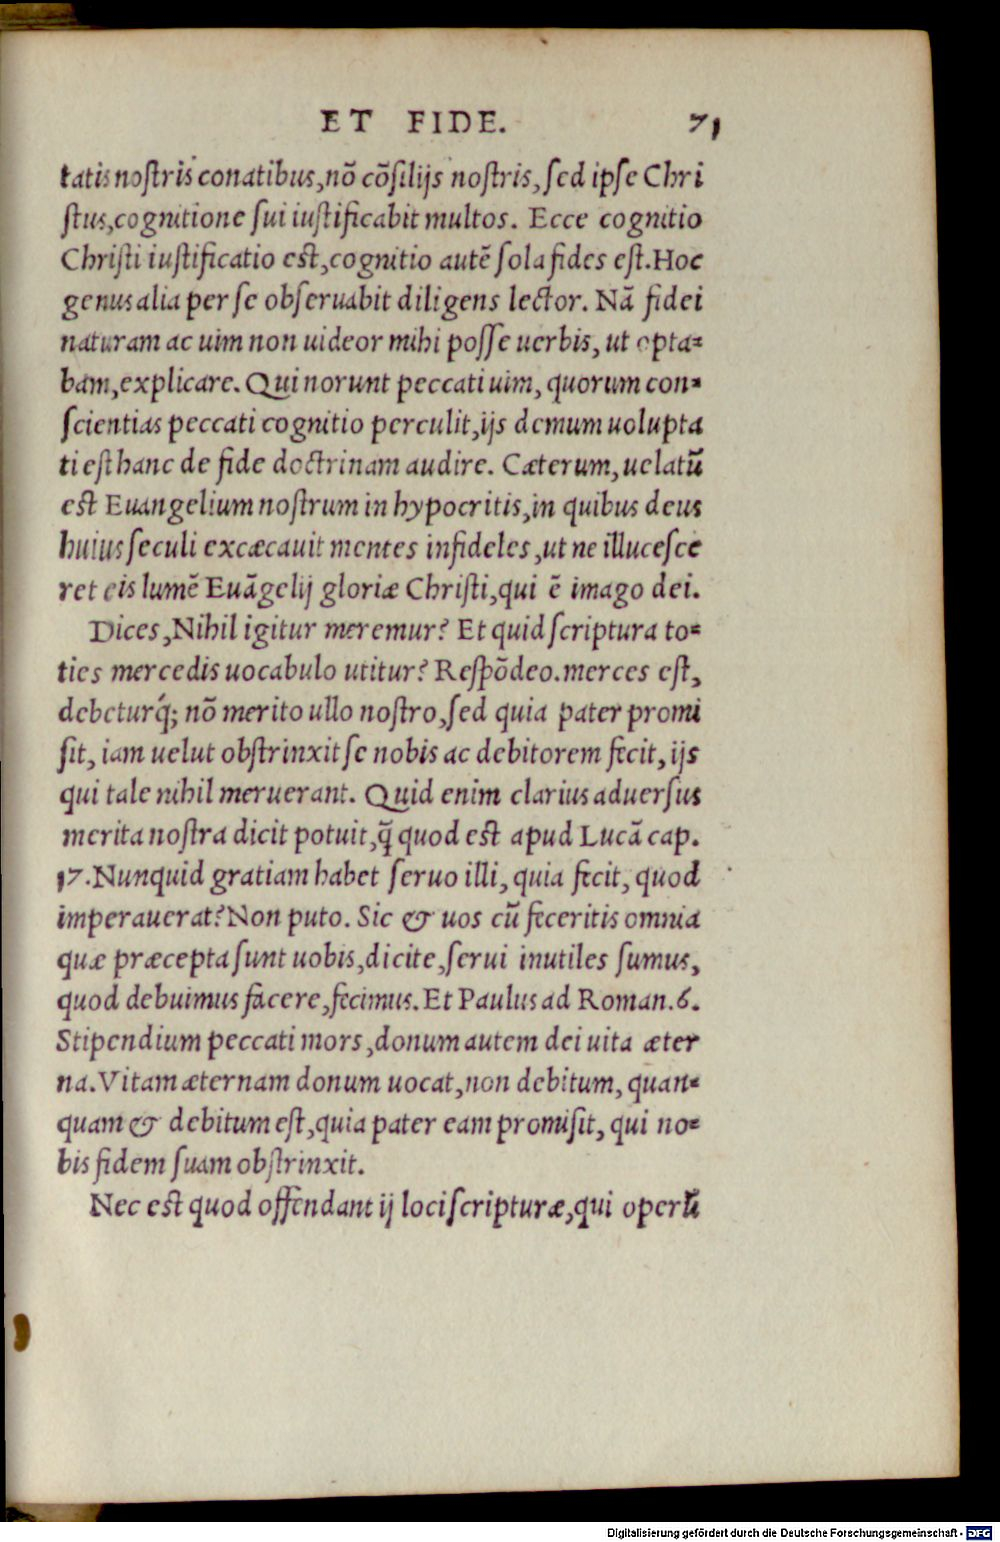 ET FIDE. 71
tatis nostris conatibus, nō cōsilijs nostris, sed ipse Chri
stus, cognitione sui iustificabit multos. Ecce cognitio
Christi iustificatio est, cognitio autē sola fides est. Hoc
genus alia per se obseruabit diligens lector. Nā fidei
naturam ac uim non uideor mihi posse uerbis, ut opta-
bam, explicare. Qui norunt peccati uim, quorum con-
scientias peccati cognitio perculit, ijs demum uolupta
ti est hanc de fide doctrinam audire. Cæterum, uelatū
est Euangelium nostrum in hypocritis, in quibus deus
huius seculi excæcauit mentes infideles, ut ne illucesce
ret eis lumē Euāgelij gloriæ Christi, qui ē imago dei.
Dices, Nihil igitur meremur? Et quid scriptura to-
ties mercedis uocabulo utitur? Respōdeo. merces est,
debeturq́; nō merito ullo nostro, sed quia pater promi
sit, iam uelut obstrinxit se nobis ac debitorem fecit, ijs
qui tale nihil meruerant. Quid enim clarius aduersus
merita nostra dicit potuit, q̄ quod est apud Lucā cap.
17. Nunquid gratiam habet seruo illi, quia fecit, quod
imperauerat? Non puto. Sic & uos cū feceritis omnia
quæ præcepta sunt uobis, dicite, serui inutiles sumus,
quod debuimus facere, fecimus. Et Paulus ad Roman. 6.
Stipendium peccati mors, donum autem dei uita æter
na. Vitam æternam donum uocat, non debitum, quan-
quam & debitum est, quia pater eam promisit, qui no-
bis fidem suam obstrinxit.
Nec est quod offendant ij loci scripturæ, qui operū
Digitalisierung gefördert durch die Deutsche Forschungsgemeinschaft - DFG